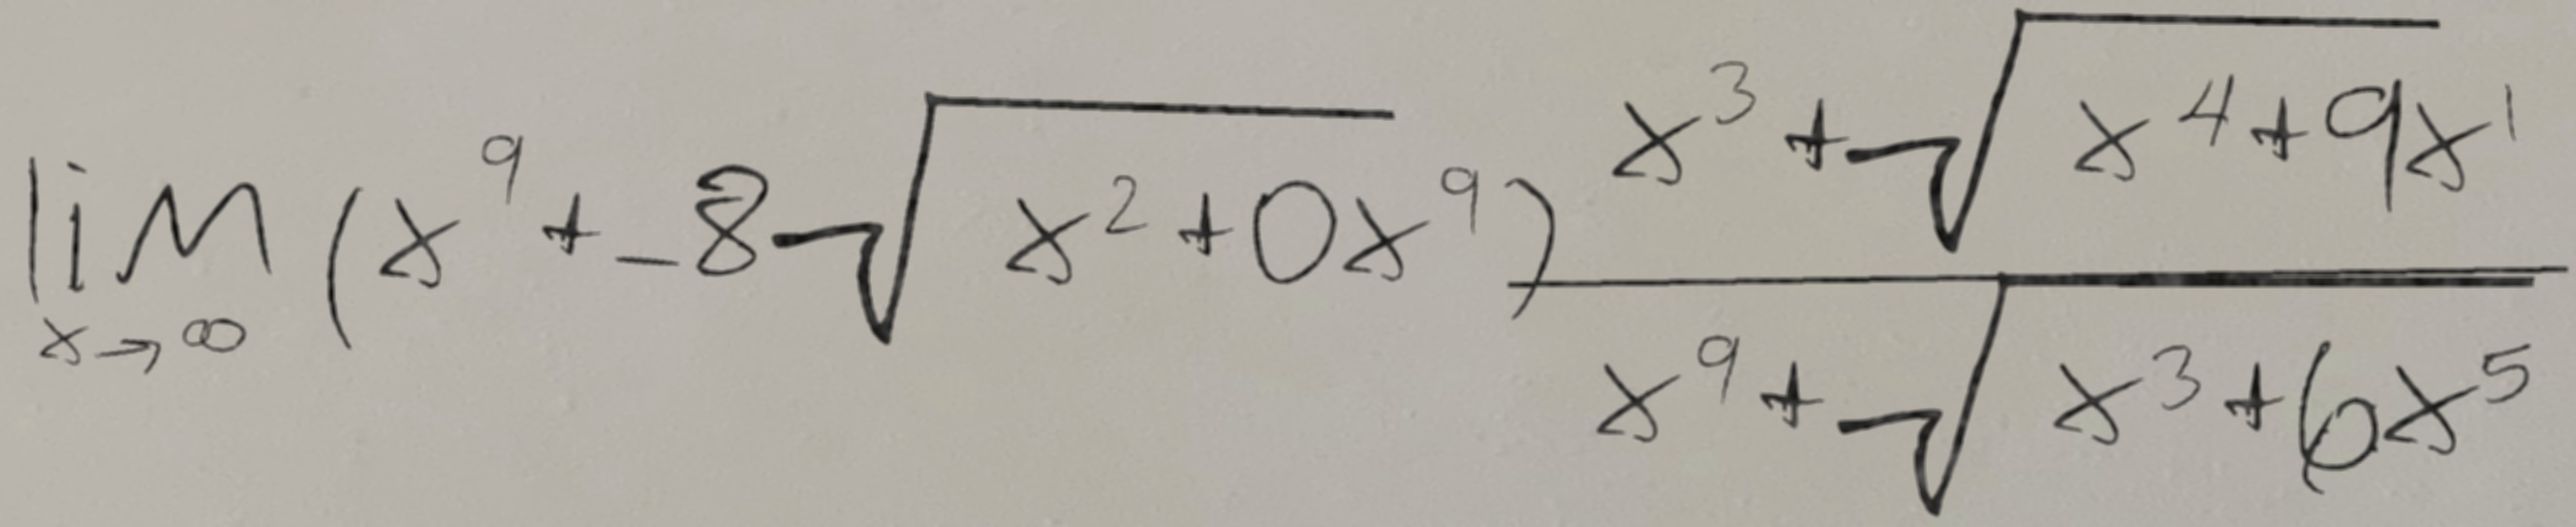 \lim_{x \to \infty} (x^9 + -8\sqrt{x^2 + 0x^9}) \frac{x^3 + \sqrt{x^4 + 9x^1}}{x^9 + \sqrt{x^3 + 6x^5}}